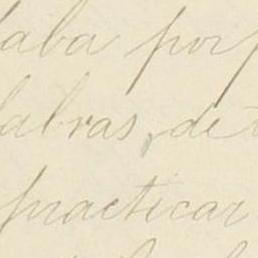 laba por p
labras, de t
practicar